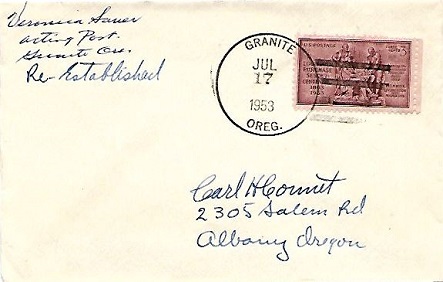 Veronica Sauer
Acting Post.
Granite Ore.
Re-Established
GRANITE
JUL
17
1953
OREG.
U.S. POSTAGE
PURCHASE
1803
1953
3¢
Carl H
2305 Salem Rd
Albany Oregon